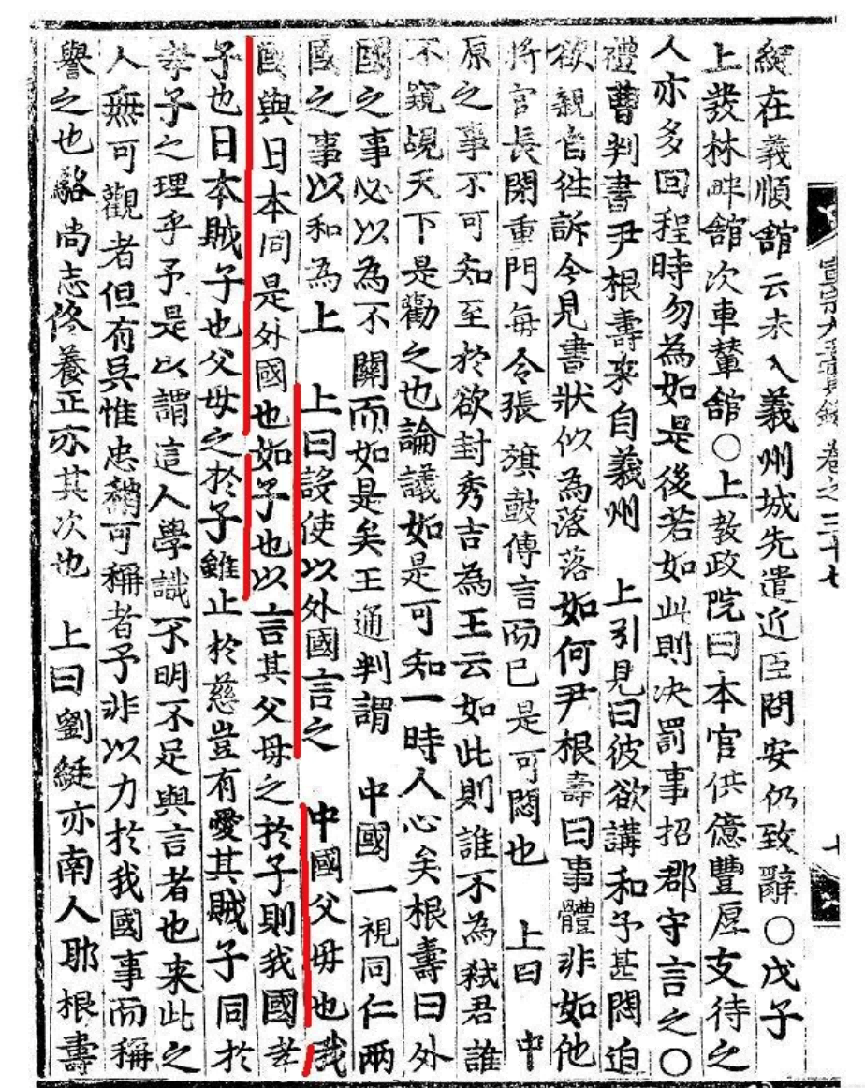 宣宗大王實錄卷之三十七
綎在義順館云未入義州城先遣近臣問安仍致辭○戊子
上發林畔館次車輦館○上敎政院曰本官供億豐厚支待之
人亦多回程時勿為如是後若如此則決罰事招郡守言之○
禮曹判書尹根壽來自義州 上引見曰彼欲講和予甚悶迫
欲親自往訴今見書狀似為落落如何尹根壽曰事體非如他
將官長閉重門每令張旗鼓傳言而已是可悶也 上曰 中
原之事不可知至於欲封秀吉為王云如此則誰不為弑君誰
不窺覘天下是勸之也論議如是可知一時人心矣根壽曰外
國之事必以為不關而如是矣王通判謂 中國一視同仁兩
國之事以和為上 上曰設使以外國言之 中國父母也我
國與日本同是外國也如子也以言其父母之於子則我國孝
子也日本賊子也父母之於子雖止於慈豈有愛其賊子同於
孝子之理乎予是以謂這人學識不明不足與言者也来此之
人無可觀者但有吳惟忠稍可稱者予非以力於我國事而稱
譽之也駱尚志佟養正亦其次也 上曰劉綎亦南人耶根壽